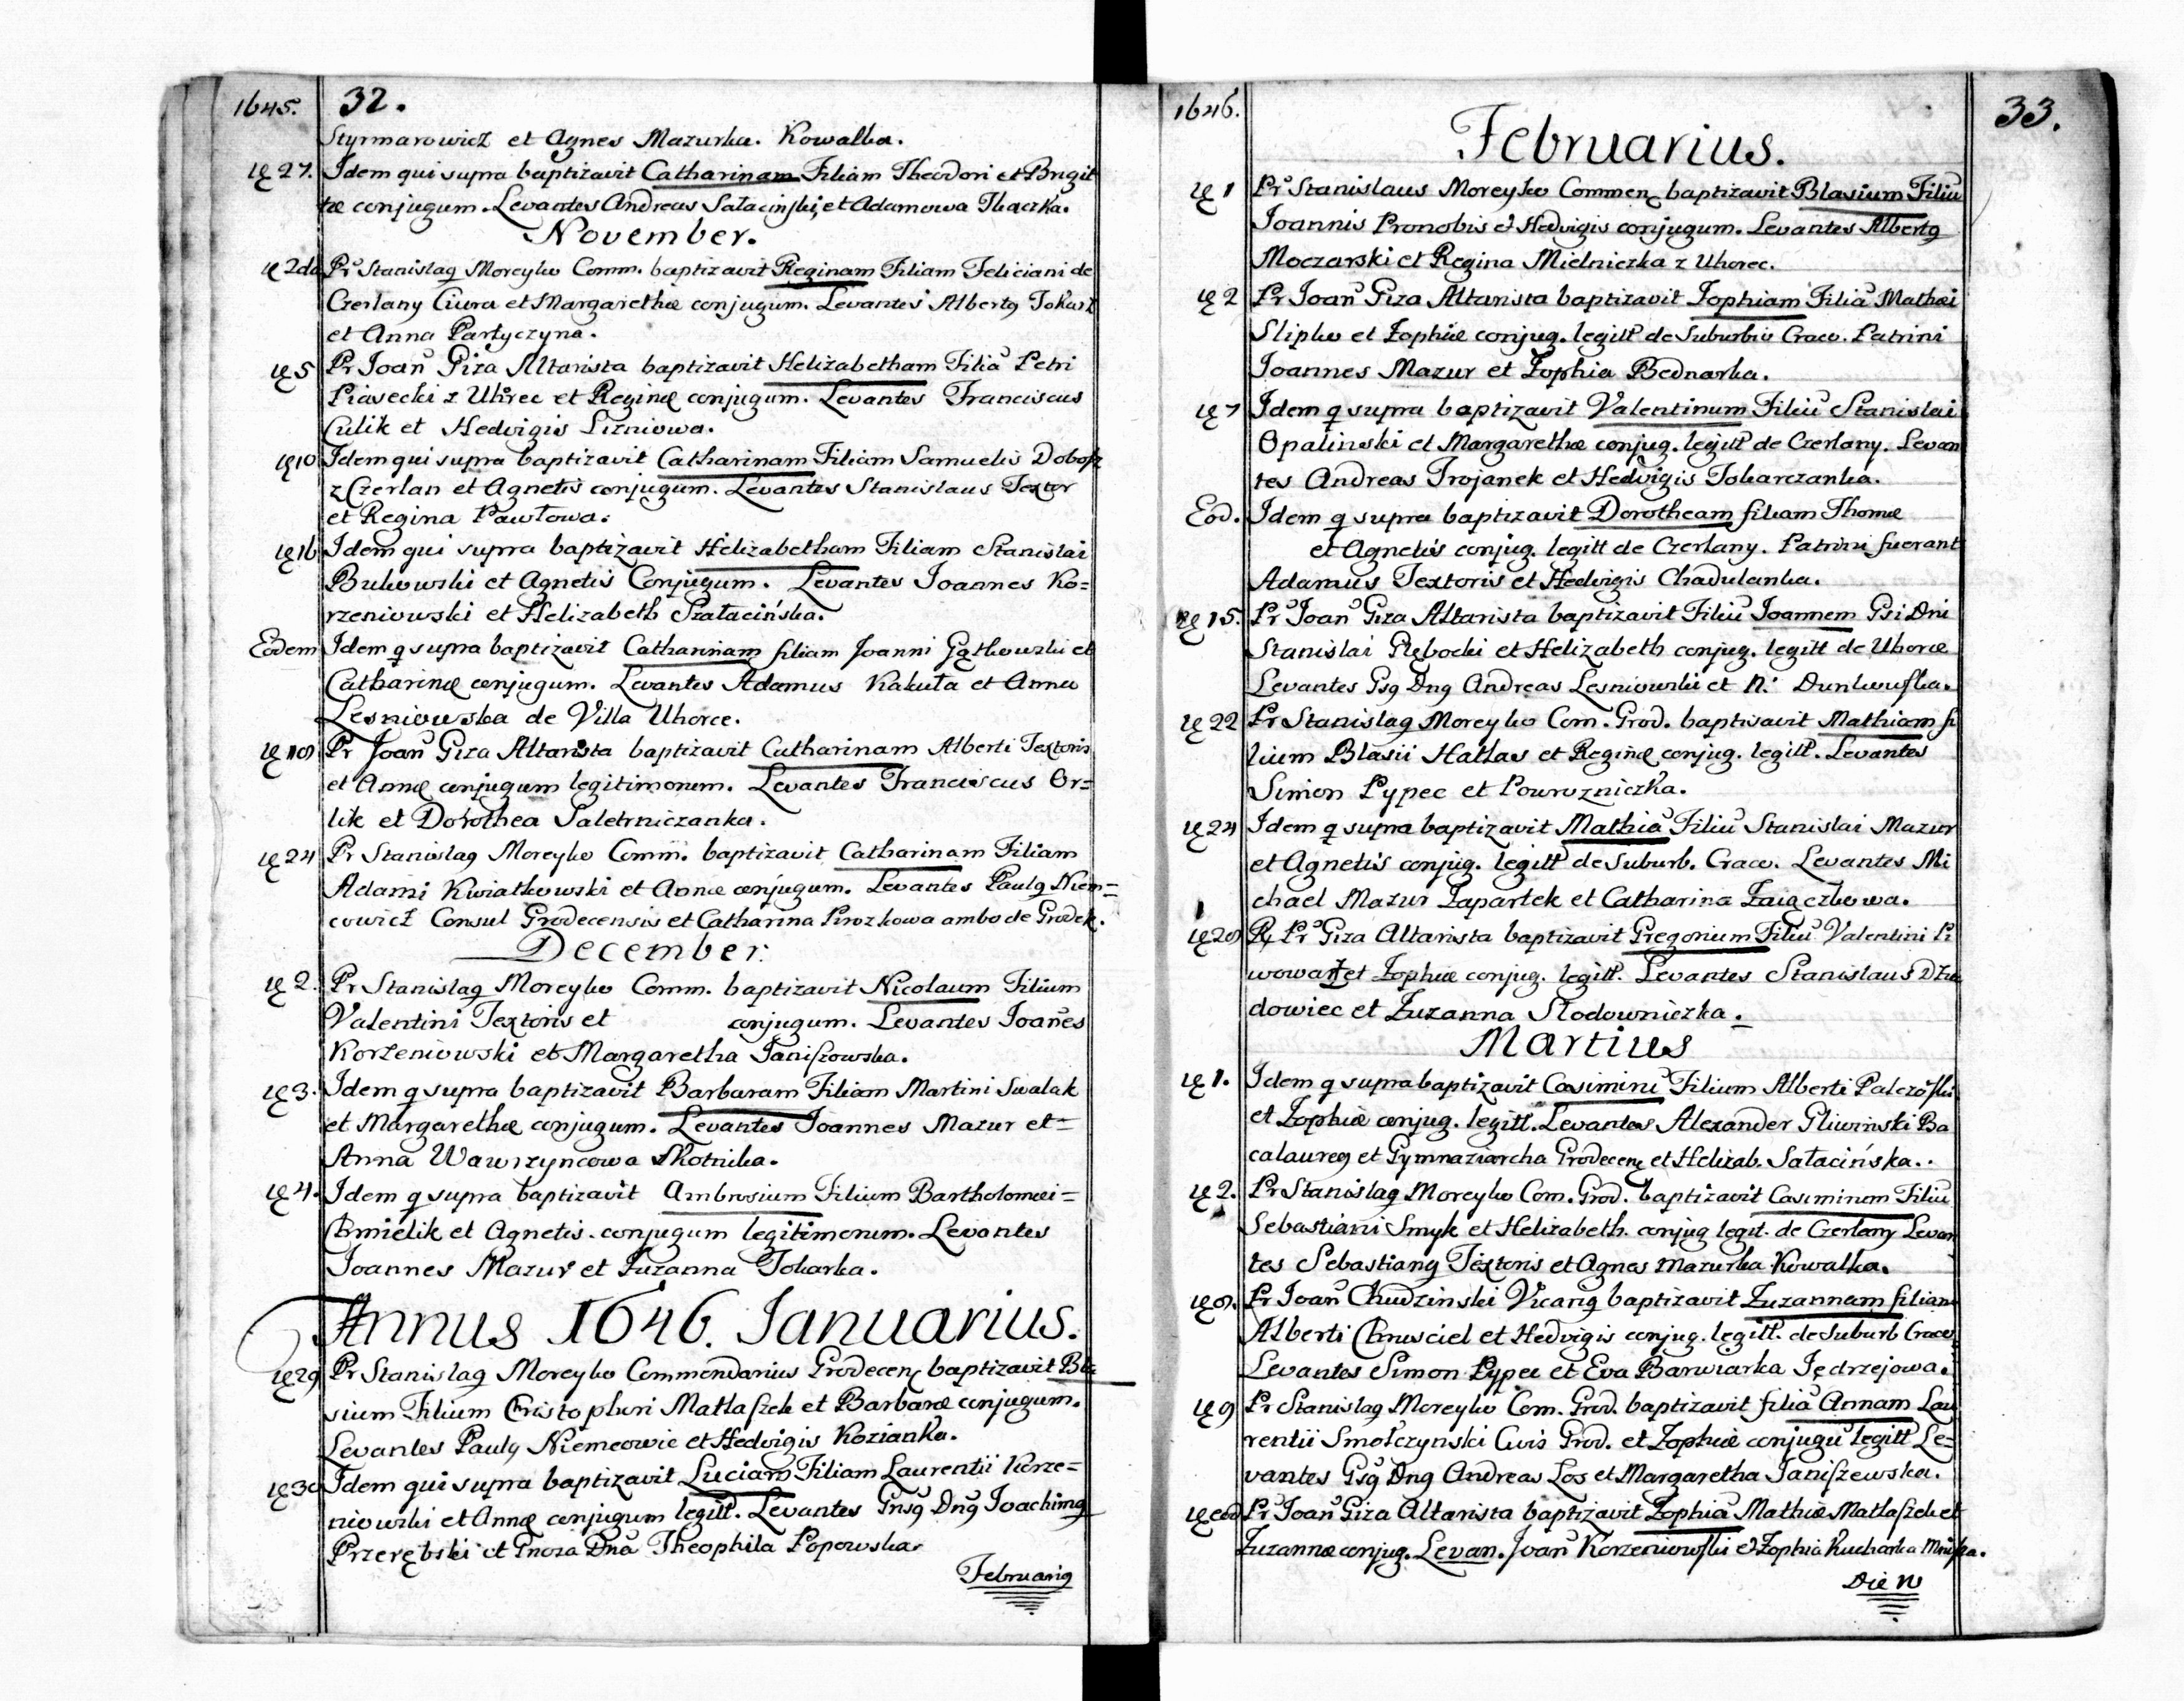 1645. 32.
Styrmarowicz et Agnes Mazurka. Kowalka.
27. Idem qui supra baptizavit Catharinam Filiam Theodori et Brigit
tæ conjugum. Levantes Andreas Satacinski, et Adamowa Tkaczka.
November.
2da Pr Stanislaq Moreyko Comm. baptizavit Reginam Filiam Feliciani de
Czerlany Ciura et Margarethæ conjugum. Levantes Albertq Tokarz
et Anna Partyczyna.
5 Pr Joan̄ Giza Altarista baptizavit Helizabetham Filiā Petri
Piasecki z Uhrec et Reginæ conjugum. Levantes Franciscus
Culik et Hedvigis Lizniowa.
10 Idem qui supra baptizavit Catharinam Filiam Samuelis Dobosz
z Czerlan et Agnetis conjugum. Levantes Stanislaus Textor
et Regina Pawłowa.
16 Idem qui supra baptizavit Helizabetham Filiam Stanislai
Bukowski et Agnetis Conjugum. Levantes Joannes Ko=
rzeniowski et Helizabeth Szatacińska.
Eodem Idem q supra baptizavit Catharinam filiam Joanni Gątkowski et
Catharinæ conjugum. Levantes Adamus Kakuta et Anna
Lesniowska de Villa Uhorce.
Pr Joan̄ Giza Altarista baptizavit Catharinam Alberti Textoris
et Annæ conjugum legitimorum. Levantes Franciscus Or=
lik et Dorothea Saletrniczanka.
24 Pr Stanislaq Moreyko Comm. baptizavit Catharinam Filiam
Adami Kwiatkowski et Annæ conjugum. Levantes Paulq Niem=
cowicz Consul Grodecensis et Catharina Pirozkowa ambo de Grodek.
December.
2. Pr Stanislaq Moreyko Comm. baptizavit Nicolaum Filium
Valentini Textoris et conjugum. Levantes Joañes
Korzeniowski et Margaretha Janiszowska.
3. Idem q supra baptizavit Barbaram Filiam Martini Swalak
et Margarethæ conjugum. Levantes Joannes Mazur et=
Anna Wawrzyncowa Skotnika.
4. Idem q supra baptizavit Ambrosium Filium Bartholomæi=
Chmielik et Agnetis conjugum legitimorum. Levantes
Joannes Mazur et Zuzanna Tokarka.
Annus 1646. Januarius.
29 Pr Stanislaq Moreyko Commendarius Grodecen baptizavit Bla
sium Filium Christophori Matłaszek et Barbaræ conjugum.
Levantes Paulq Niemcowic et Hedvigis Kozianka.
30 Idem qui supra baptizavit Luciam Filiam Laurentii Korze=
niowski et Annæ conjugum legitt. Levantes Gnsq Dnq Joachimq
Przerębski et Gnoza Dna Theophila Popowska.
Februariq
1646. 33.
Februarius.
1 Pr Stanislaus Moreyko Commen baptizavit Blasium Filiū
Joannis Pronobis et Hedvigis conjugum. Levantes Albertq
Moczarski et Regina Mielniczka z Uhorec.
2 Pr Joan̄ Giza Altarista baptizavit Zophiam Filiā Mathæi
Slipko et Zophiæ conjug. legitt de Suburbio Craco. Patrini
Joannes Mazur et Zophia Bednarka.
7 Idem q supra baptizavit Valentinum Filiū Stanislai
Opalinski et Margarethæ conjug. legitt de Czerlany. Levan
tes Andreas Trojanek et Hedvigis Tokarczanka.
Eod. Idem q supra baptizavit Dorotheam filiam Thomæ
et Agnetis conjug. legitt de Czerlany. Patrini fuerant
Adamus Textoris et Hedvigis Chadulanka.
15. Pr Joan̄ Giza Altarista baptizavit Filiū Joannem Gsi Dni
Stanislai Głębocki et Helizabeth conjug. legitt de Uhorce
Levantes Gsq Dnq Andreas Lesniowski et N. Dunkowska.
22 Pr Stanislaq Moreyko Com. Grod. baptisavit Mathiam fi
lium Blasii Hallas et Reginæ conjug. legitt. Levantes
Simon Pypec et Powrozniczka.
24 Idem q supra baptizavit Mathiā Filiū Stanislai Mazur
et Agnetis conjug. legitt de Suburb. Craco. Levantes Mi
chael Mazur Zapartek et Catharina Zaiączkowa.
Pr Giza Altarista baptizavit Gregorium Filiū Valentini Pi
wowar et Zophiæ conjug. legitt. Levantes Stanislaus Dzia
dowiec et Zuzanna Słodowniczka.
Martius
1. Idem q supra baptizavit Casimirū Filium Alberti Palczoski
et Zophiæ conjug. legitt. Levantes Alexander Gliwinski Ba
calaureq et Gymnaziarcha Grodecen et Helizab. Satacińska.
2. Pr Stanislaq Moreyko Com. Grod. baptizavit Casimirum Filiū
Sebastiani Smyk et Helizabeth. conjug legit. de Czerlany Levan
tes Sebastianq Textoris et Agnes Mazurka Kowalka.
8. Pr Joan̄ Chudzinski Vicariq baptizavit Zuzannam filiam
Alberti Chrusciel et Hedvigis conjug. legitt. de Suburb Craco
Levantes Simon Pypec et Eva Barwiarka Jędrzejowa.
9 Pr Stanislaq Moreyko Com. Grod. baptizavit filiā Annam Lau
rentii Smołczynski Civis Grod. et Zophiæ conjugū legitt Le=
vantes Gsq Dnq Andreas Los et Margaretha Janiszewska.
eod Pr Joan̄ Giza Altarista baptizavit Zophiā Mathiæ Matłaszek et
Zuzannæ conjug. Levan. Joan̄ Korzeniowski et Zophia Kucharka
Die